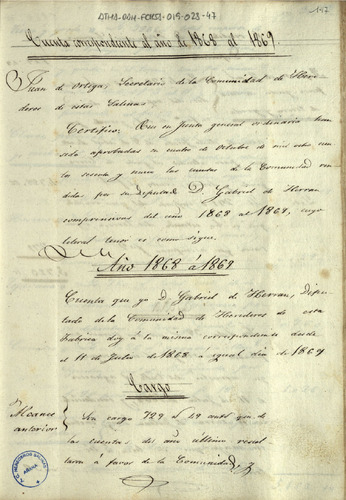 ATHA-DGH-FCRSA-015-023-47
147
Cuenta correspondiente al año de 1868 al 1869.
Juan de Ortega, Secretario de la Comunidad de Here-
deros de estas Salinas
Certifico: Que en Junta general ordinaria han
sido aprobadas en cuatro de Octubre de mil ocho cien
to sesenta y nueve las cuentas de la Comunidad ren
didas por su Diputado D. Gabriel de Herran
comprensivas del año 1868 al 1869, cuyo
literal tenor es como sigue.
Año 1868 á 1869
Cuenta que yo D. Gabriel de Herran, Dipu-
tado de la Comunidad de Herederos de esta
Fabrica doy á la misma correspondiente desde
el 1º de Julio de 1868 a igual dia de 1869
Cargo
Alcance
anterior
Son cargo 729 el 49 mils que de
las cuentas del año último resul
taron á favor de la Comunidad